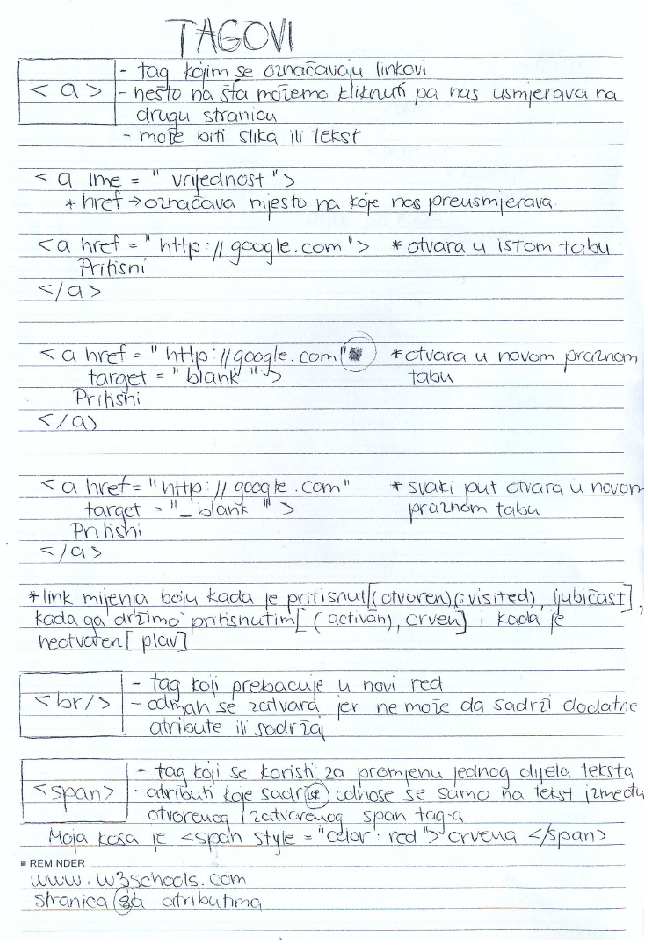 TAGOVI
<a>
- tag kojim se označavaju linkovi
- nešto na šta možemo kliknuti pa nas usmjerava na
drugu stranicu
- može biti slika ili tekst
<a ime = "vrijednost">
+ href → označava mjesto na koje nas preusmjerava
<a href = "http://google.com"> *otvara u istom tabu
Pritisni
</a>
<a href = "http://google.com" *otvara u novom praznom
target = "blank"> tabu
Pritisni
</a>
<a href = "http://google.com" *svaki put otvara u novom
target = "_blank"> praznom tabu
Pritisni
</a>
*link mijenja boju kada je pritisnut [(otvoren)(:visited), ljubičast],
kada ga držimo pritisnutim [(activan), crven] i kada je
neotvoren [plav]
<br/>
- tag koji prebacuje u novi red
- odmah se zatvara jer ne može da sadrži dodatne
atribute ili sadržaj
<span>
- tag koji se koristi za promjenu jednog dijela teksta
- atributi koje sadrži odnose se samo na tekst između
otvorenog i zatvorenog span tag-a
Moja kosa je <span style = "color: red"> crvena </span>
REMINDER
www.w3schools.com
stranica sa atributima